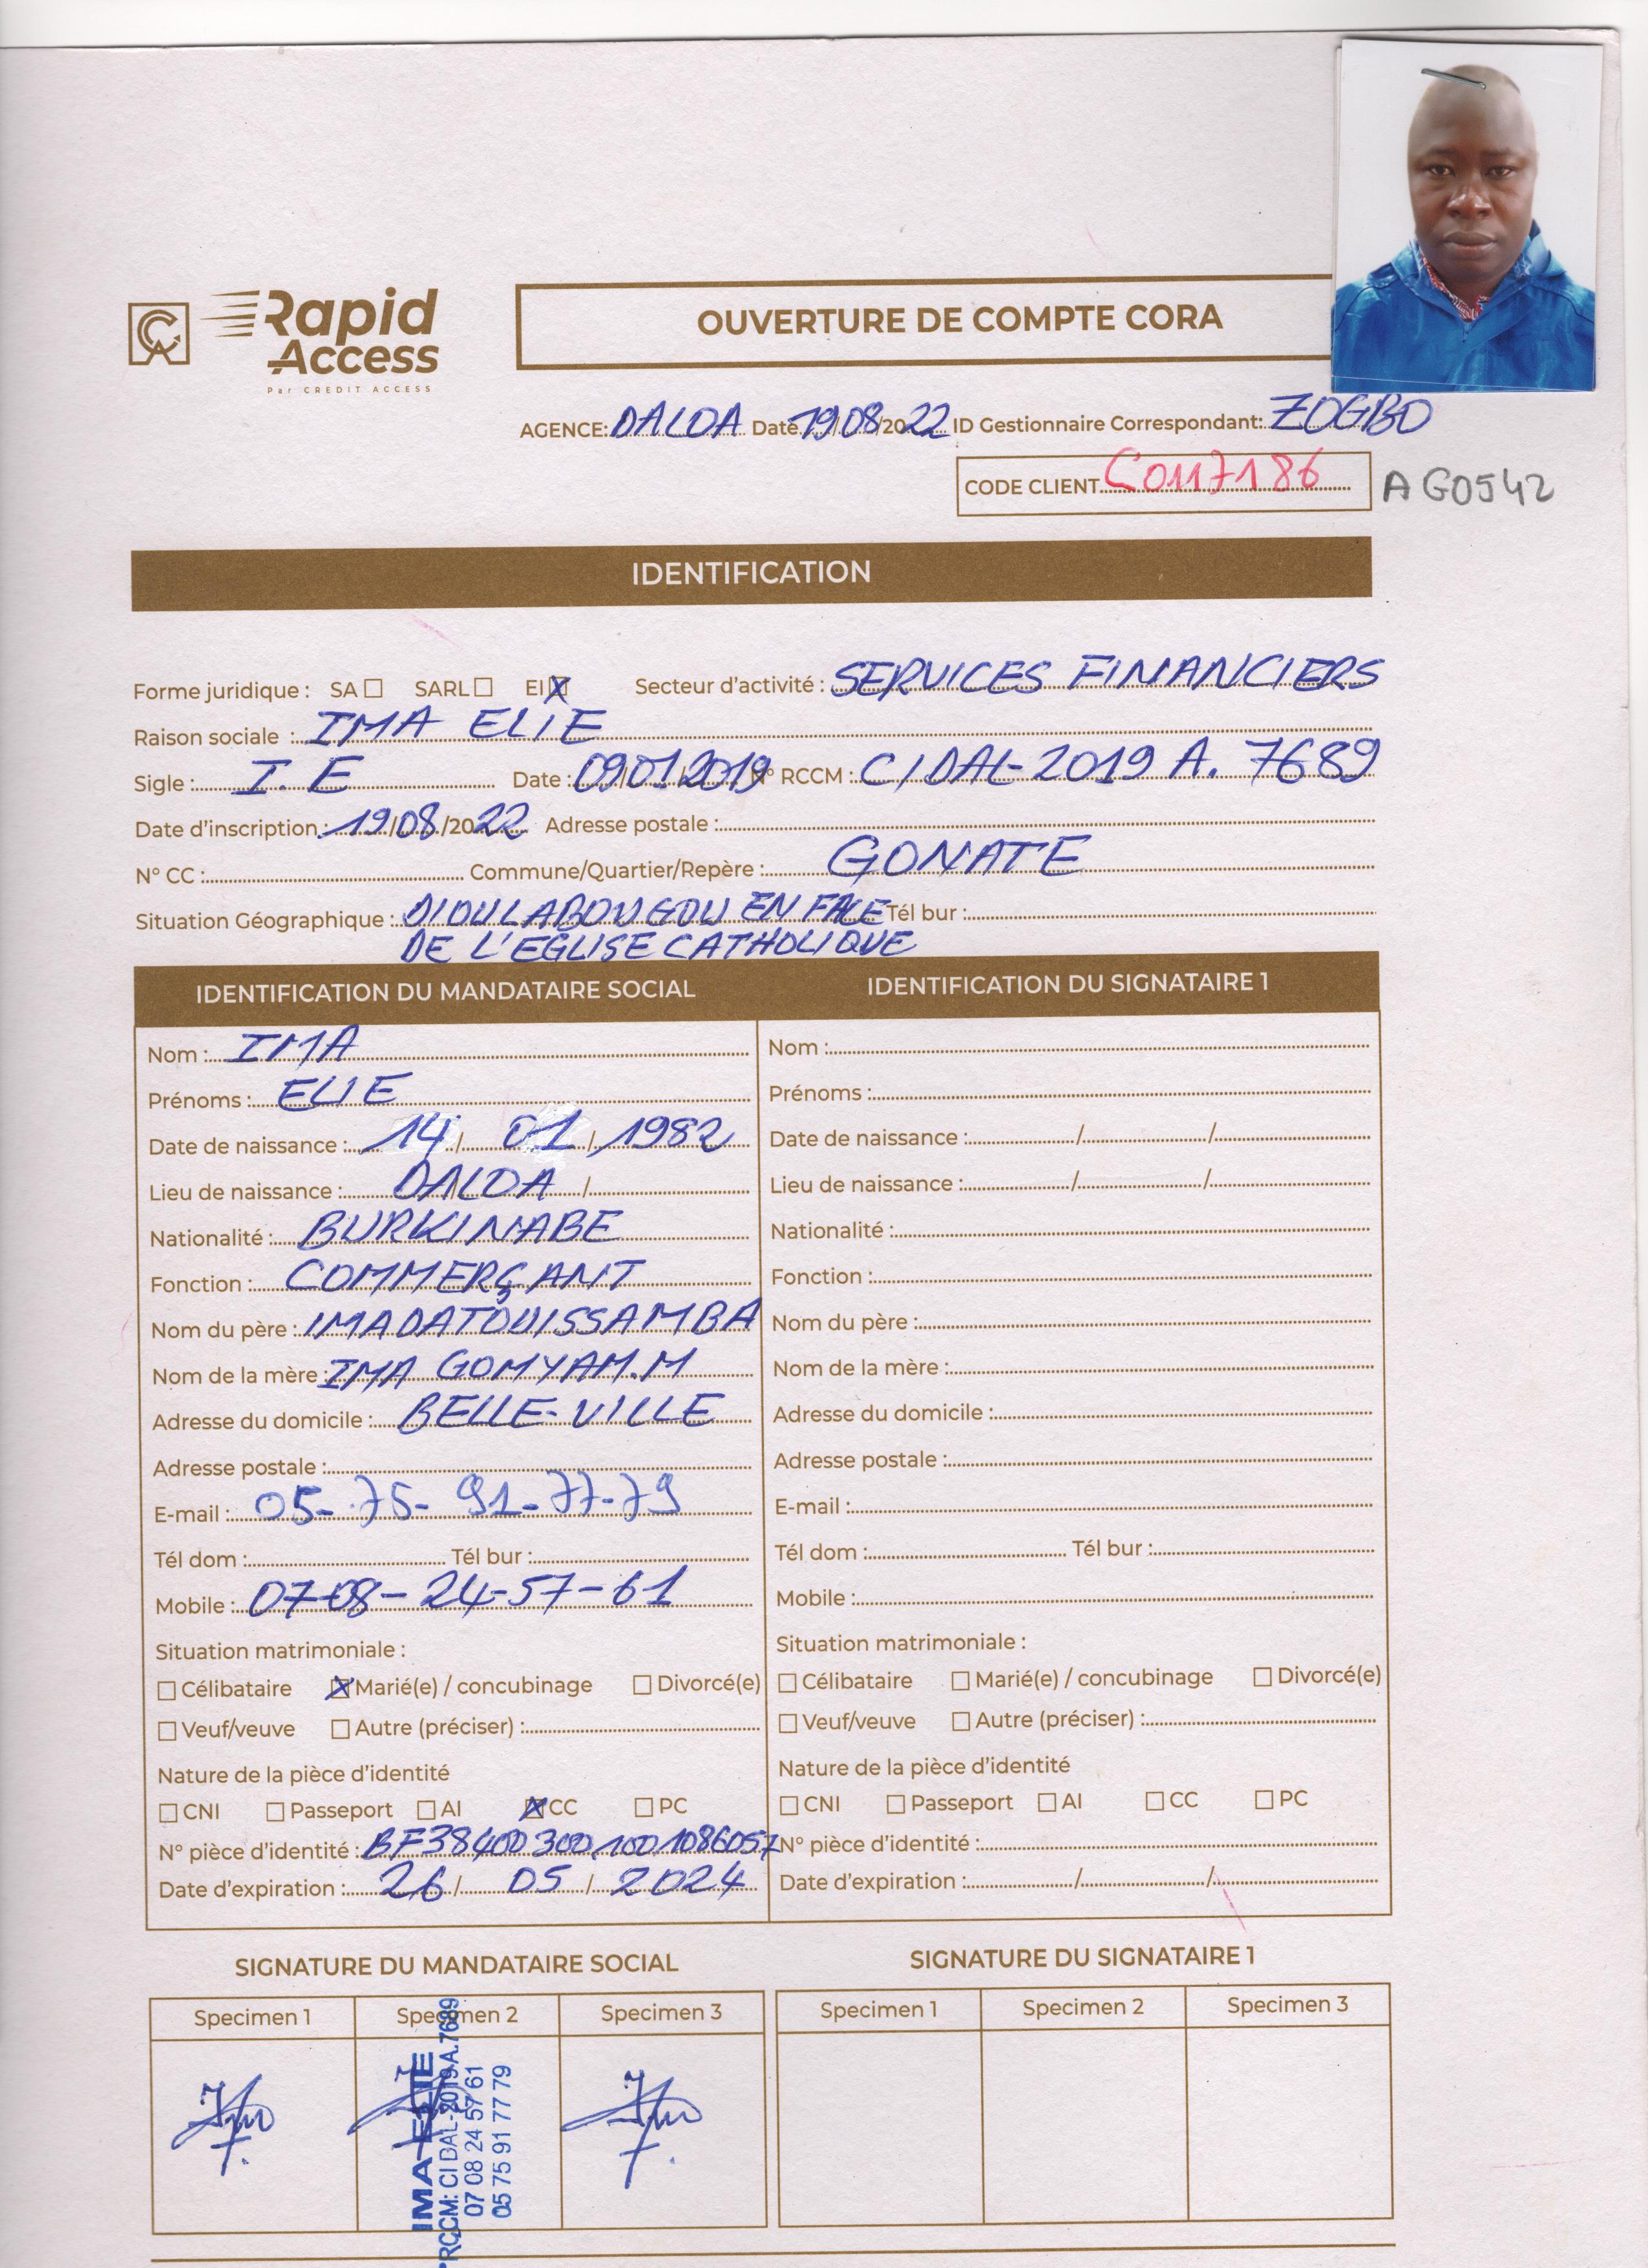 Rapid
Access
Par CREDIT ACCESS
OUVERTURE DE COMPTE CORA
AGENCE: DALOA Date 19/08/2022 ID Gestionnaire Correspondant: ZOGBO
CODE CLIENT C0117186 AG0542
IDENTIFICATION
Forme juridique : SA SARL EI X Secteur d'activité : SERVICES FINANCIERS
Raison sociale : IMA ELIE
Sigle : I.E Date : 09/01/2019 N° RCCM : CI DAL-2019 A. 7689
Date d'inscription : 19/08/2022 Adresse postale :
N° CC : Commune/Quartier/Repère : GONATE
Situation Géographique : DIOULABOUGOU EN FACE Tél bur :
DE L'EGLISE CATHOLIQUE
IDENTIFICATION DU MANDATAIRE SOCIAL
Nom : IMA
Prénoms : ELIE
Date de naissance : 14/01/1982
Lieu de naissance : DALOA /
Nationalité : BURKINABE
Fonction : COMMERÇANT
Nom du père : IMADATOUISSAMBA
Nom de la mère : IMA GOMYAM.M
Adresse du domicile : BELLE-VILLE
Adresse postale :
E-mail : 05-75-91-77-79
Tél dom : Tél bur :
Mobile : 07-08-24-57-61
Situation matrimoniale :
Célibataire X Marié(e) / concubinage Divorcé(e)
Veuf/veuve Autre (préciser) :
Nature de la pièce d'identité
CNI Passeport AI X CC PC
N° pièce d'identité : BF38400300.1001086057
Date d'expiration : 26/05/2024
IDENTIFICATION DU SIGNATAIRE 1
Nom :
Prénoms :
Date de naissance : / /
Lieu de naissance : / /
Nationalité :
Fonction :
Nom du père :
Nom de la mère :
Adresse du domicile :
Adresse postale :
E-mail :
Tél dom : Tél bur :
Mobile :
Situation matrimoniale :
Célibataire Marié(e) / concubinage Divorcé(e)
Veuf/veuve Autre (préciser) :
Nature de la pièce d'identité
CNI Passeport AI CC PC
N° pièce d'identité :
Date d'expiration : / /
SIGNATURE DU MANDATAIRE SOCIAL
Specimen 1 Specimen 2 Specimen 3
IMA ELIE
RCCM: CI DAL-2019 A.7689
07 08 24 57 61
05 75 91 77 79
SIGNATURE DU SIGNATAIRE 1
Specimen 1 Specimen 2 Specimen 3